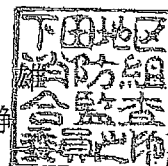 下田地区
消防組
合監査
委員之印